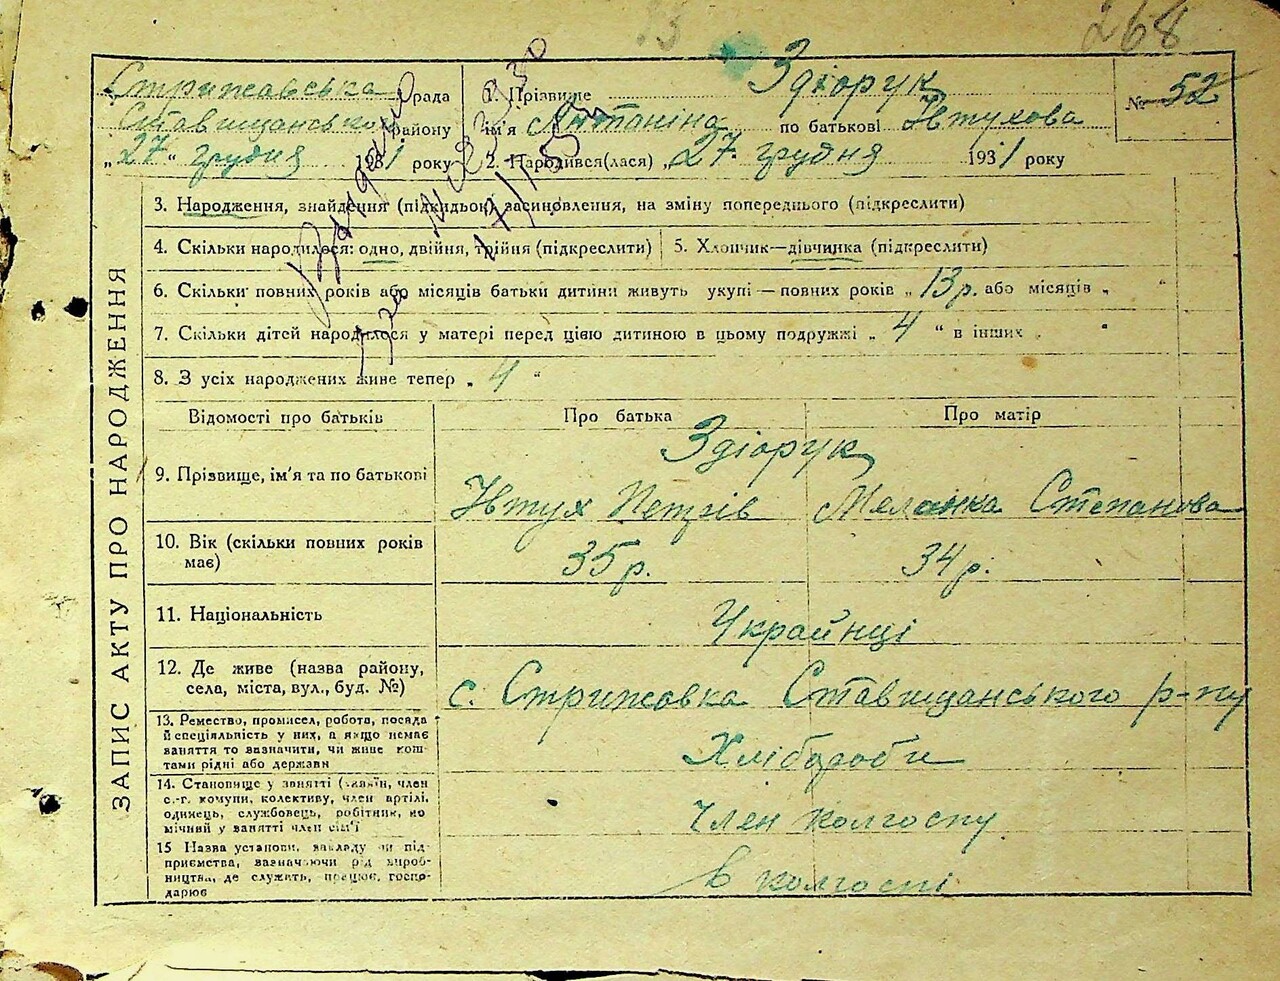 268
Стрижавська рада
Ставищанського району
„27“ грудня 1931 року
1. Прізвище Здіорук
ім'я Антаніна по батькові Івтухова
2. Народився(лася) „27. грудня 1931 року
№ 52
ЗАПИС АКТУ ПРО НАРОДЖЕННЯ
3. Народження, знайдення (підкидьок) засиновлення, на зміну попереднього (підкреслити)
4. Скільки народилося: одно, двійня, трійня (підкреслити)
5. Хлопчик—дівчинка (підкреслити)
6. Скільки повних років або місяців батьки дитини живуть укупі — повних років „ 13 р. або місяців „ “
7. Скільки дітей народилося у матері перед цією дитиною в цьому подружжі „ 4 “ в інших „ “
8. З усіх народжених живе тепер „ 4 “
Відомості про батьків Про батька Про матір
9. Прізвище, ім'я та по батькові
Здіорук
Івтух Петрів Меланка Степанова
10. Вік (скільки повних років має)
35 р. 34 р.
11. Національність
Українці
12. Де живе (назва району, села, міста, вул., буд. №)
с. Стрижовка Ставищанського р-ну
13. Ремество, промисел, робота, посада
й спеціяльність у них, а якщо немає
заняття то зазначити, чи живе кош-
тами рідні або держави
Хлібороби
14. Становище у занятті (хазяїн, член
с.-г. комуни, колективу, член артілі,
одинець, службовець, робітник, по
мічний у занятті член сім'ї
Член колгоспу
15 Назва установи, закладу чи під-
приємства, зазначаючи рід вироб-
ництва, де служить, працює, госпо-
дарює
в колгоспі